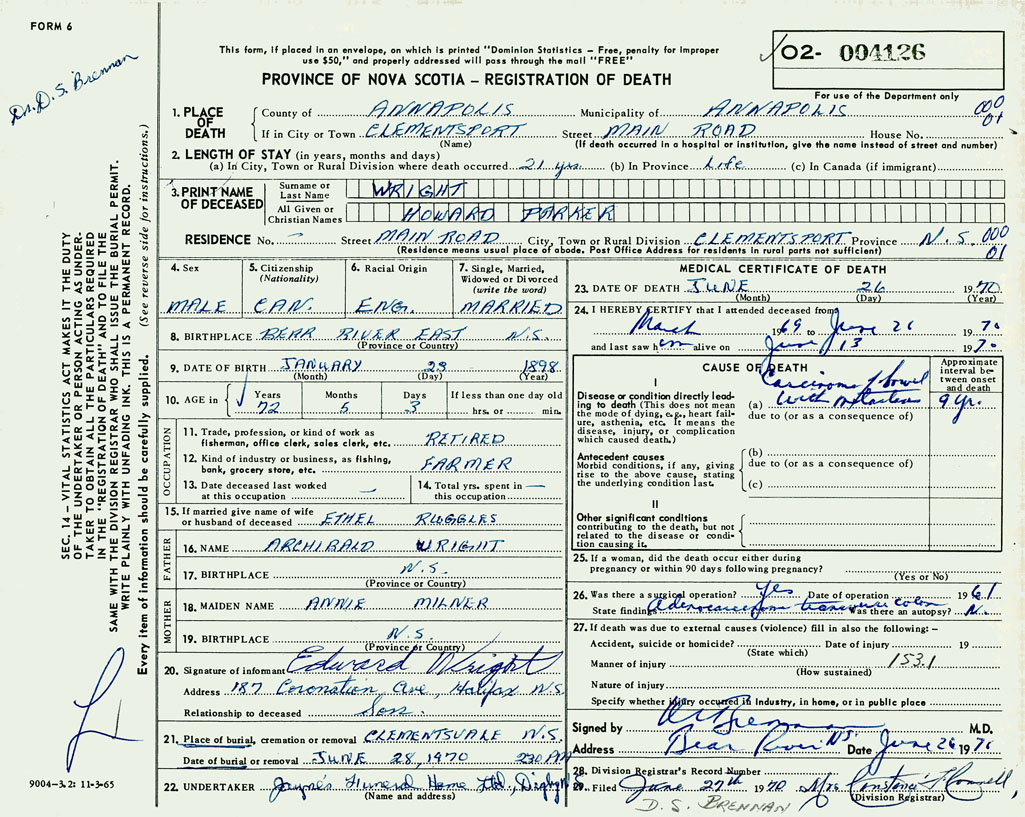 FORM 6
Dr. D. S. Brennan
This form, if placed in an envelope, on which is printed "Dominion Statistics – Free, penalty for improper
use $50," and properly addressed will pass through the mail "FREE"
PROVINCE OF NOVA SCOTIA – REGISTRATION OF DEATH
02- 004126
For use of the Department only
1. PLACE OF DEATH
County of ANNAPOLIS Municipality of ANNAPOLIS 000
If in City or Town CLEMENTSPORT Street MAIN ROAD House No. 01
(Name) (If death occurred in a hospital or institution, give the name instead of street and number)
2. LENGTH OF STAY (in years, months and days)
(a) In City, Town or Rural Division where death occurred 21 yrs. (b) In Province Life (c) In Canada (if immigrant)
3. PRINT NAME OF DECEASED
Surname or Last Name WRIGHT
All Given or Christian Names HOWARD PARKER
RESIDENCE No. – Street MAIN ROAD City, Town or Rural Division CLEMENTSPORT Province N.S. 000
(Residence means usual place of abode. Post Office Address for residents in rural parts not sufficient) 01
4. Sex
MALE
5. Citizenship
(Nationality)
CAN.
6. Racial Origin
ENG.
7. Single, Married,
Widowed or Divorced
(write the word)
MARRIED
8. BIRTHPLACE BEAR RIVER EAST N.S.
(Province or Country)
9. DATE OF BIRTH JANUARY 23 1898
(Month) (Day) (Year)
10. AGE in Years Months Days If less than one day old
72 5 3 hrs. or min.
OCCUPATION
11. Trade, profession, or kind of work as
fisherman, office clerk, sales clerk, etc. RETIRED
12. Kind of industry or business, as fishing,
bank, grocery store, etc. FARMER
13. Date deceased last worked
at this occupation —
14. Total yrs. spent in
this occupation —
15. If married give name of wife
or husband of deceased ETHEL RUGGLES
FATHER
16. NAME ARCHIBALD WRIGHT
17. BIRTHPLACE N.S.
(Province or Country)
MOTHER
18. MAIDEN NAME ANNIE MILNER
19. BIRTHPLACE N.S.
(Province or Country)
20. Signature of informant Edward Wright
Address 187 Coronation Ave, Halifax N.S.
Relationship to deceased Son.
21. Place of burial, cremation or removal CLEMENTSVALE N.S.
Date of burial or removal JUNE 28, 1970 230 PM
22. UNDERTAKER Jayne's Funeral Home Ltd., Digby N.S.
(Name and address)
MEDICAL CERTIFICATE OF DEATH
23. DATE OF DEATH JUNE 26 1970
(Month) (Day) (Year)
24. I HEREBY CERTIFY that I attended deceased from
March 1969 to June 26 1970
and last saw him alive on June 13 1970
CAUSE OF DEATH
Approximate interval between onset and death
I
Disease or condition directly leading to death (This does not mean the mode of dying, e.g., heart failure, asthenia, etc. It means the disease, injury, or complication which caused death.)
Carcinoma of bowel
(a) with metastases 9 yr.
due to (or as a consequence of)
Antecedent causes
Morbid conditions, if any, giving rise to the above cause, stating the underlying condition last.
(b)
due to (or as a consequence of)
(c)
II
Other significant conditions
contributing to the death, but not
related to the disease or condition causing it.
25. If a woman, did the death occur either during
pregnancy or within 90 days following pregnancy?
(Yes or No)
26. Was there a surgical operation? Yes Date of operation 1961
State findings Adenocarcinoma transverse colon Was there an autopsy? N.
27. If death was due to external causes (violence) fill in also the following: –
Accident, suicide or homicide? Date of injury 19
(State which) 153.1
Manner of injury
(How sustained)
Nature of injury
Specify whether injury occurred in Industry, in home, or in public place
Signed by Brennan M.D.
Address Bear River N.S. Date June 26 1970
28. Division Registrar's Record Number
29. Filed June 27th 1970 Mrs
(Division Registrar)
D. S. BRENNAN
SEC. 14 – VITAL STATISTICS ACT MAKES IT THE DUTY
OF THE UNDERTAKER OR PERSON ACTING AS UNDERTAKER
TO OBTAIN ALL THE PARTICULARS REQUIRED
IN THE "REGISTRATION OF DEATH" AND TO FILE THE
SAME WITH THE DIVISION REGISTRAR WHO SHALL ISSUE THE BURIAL PERMIT.
WRITE PLAINLY WITH UNFADING INK. THIS IS A PERMANENT RECORD.
Every item of information should be carefully supplied. (See reverse side for instructions.)
9004-3.2: 11-3-65